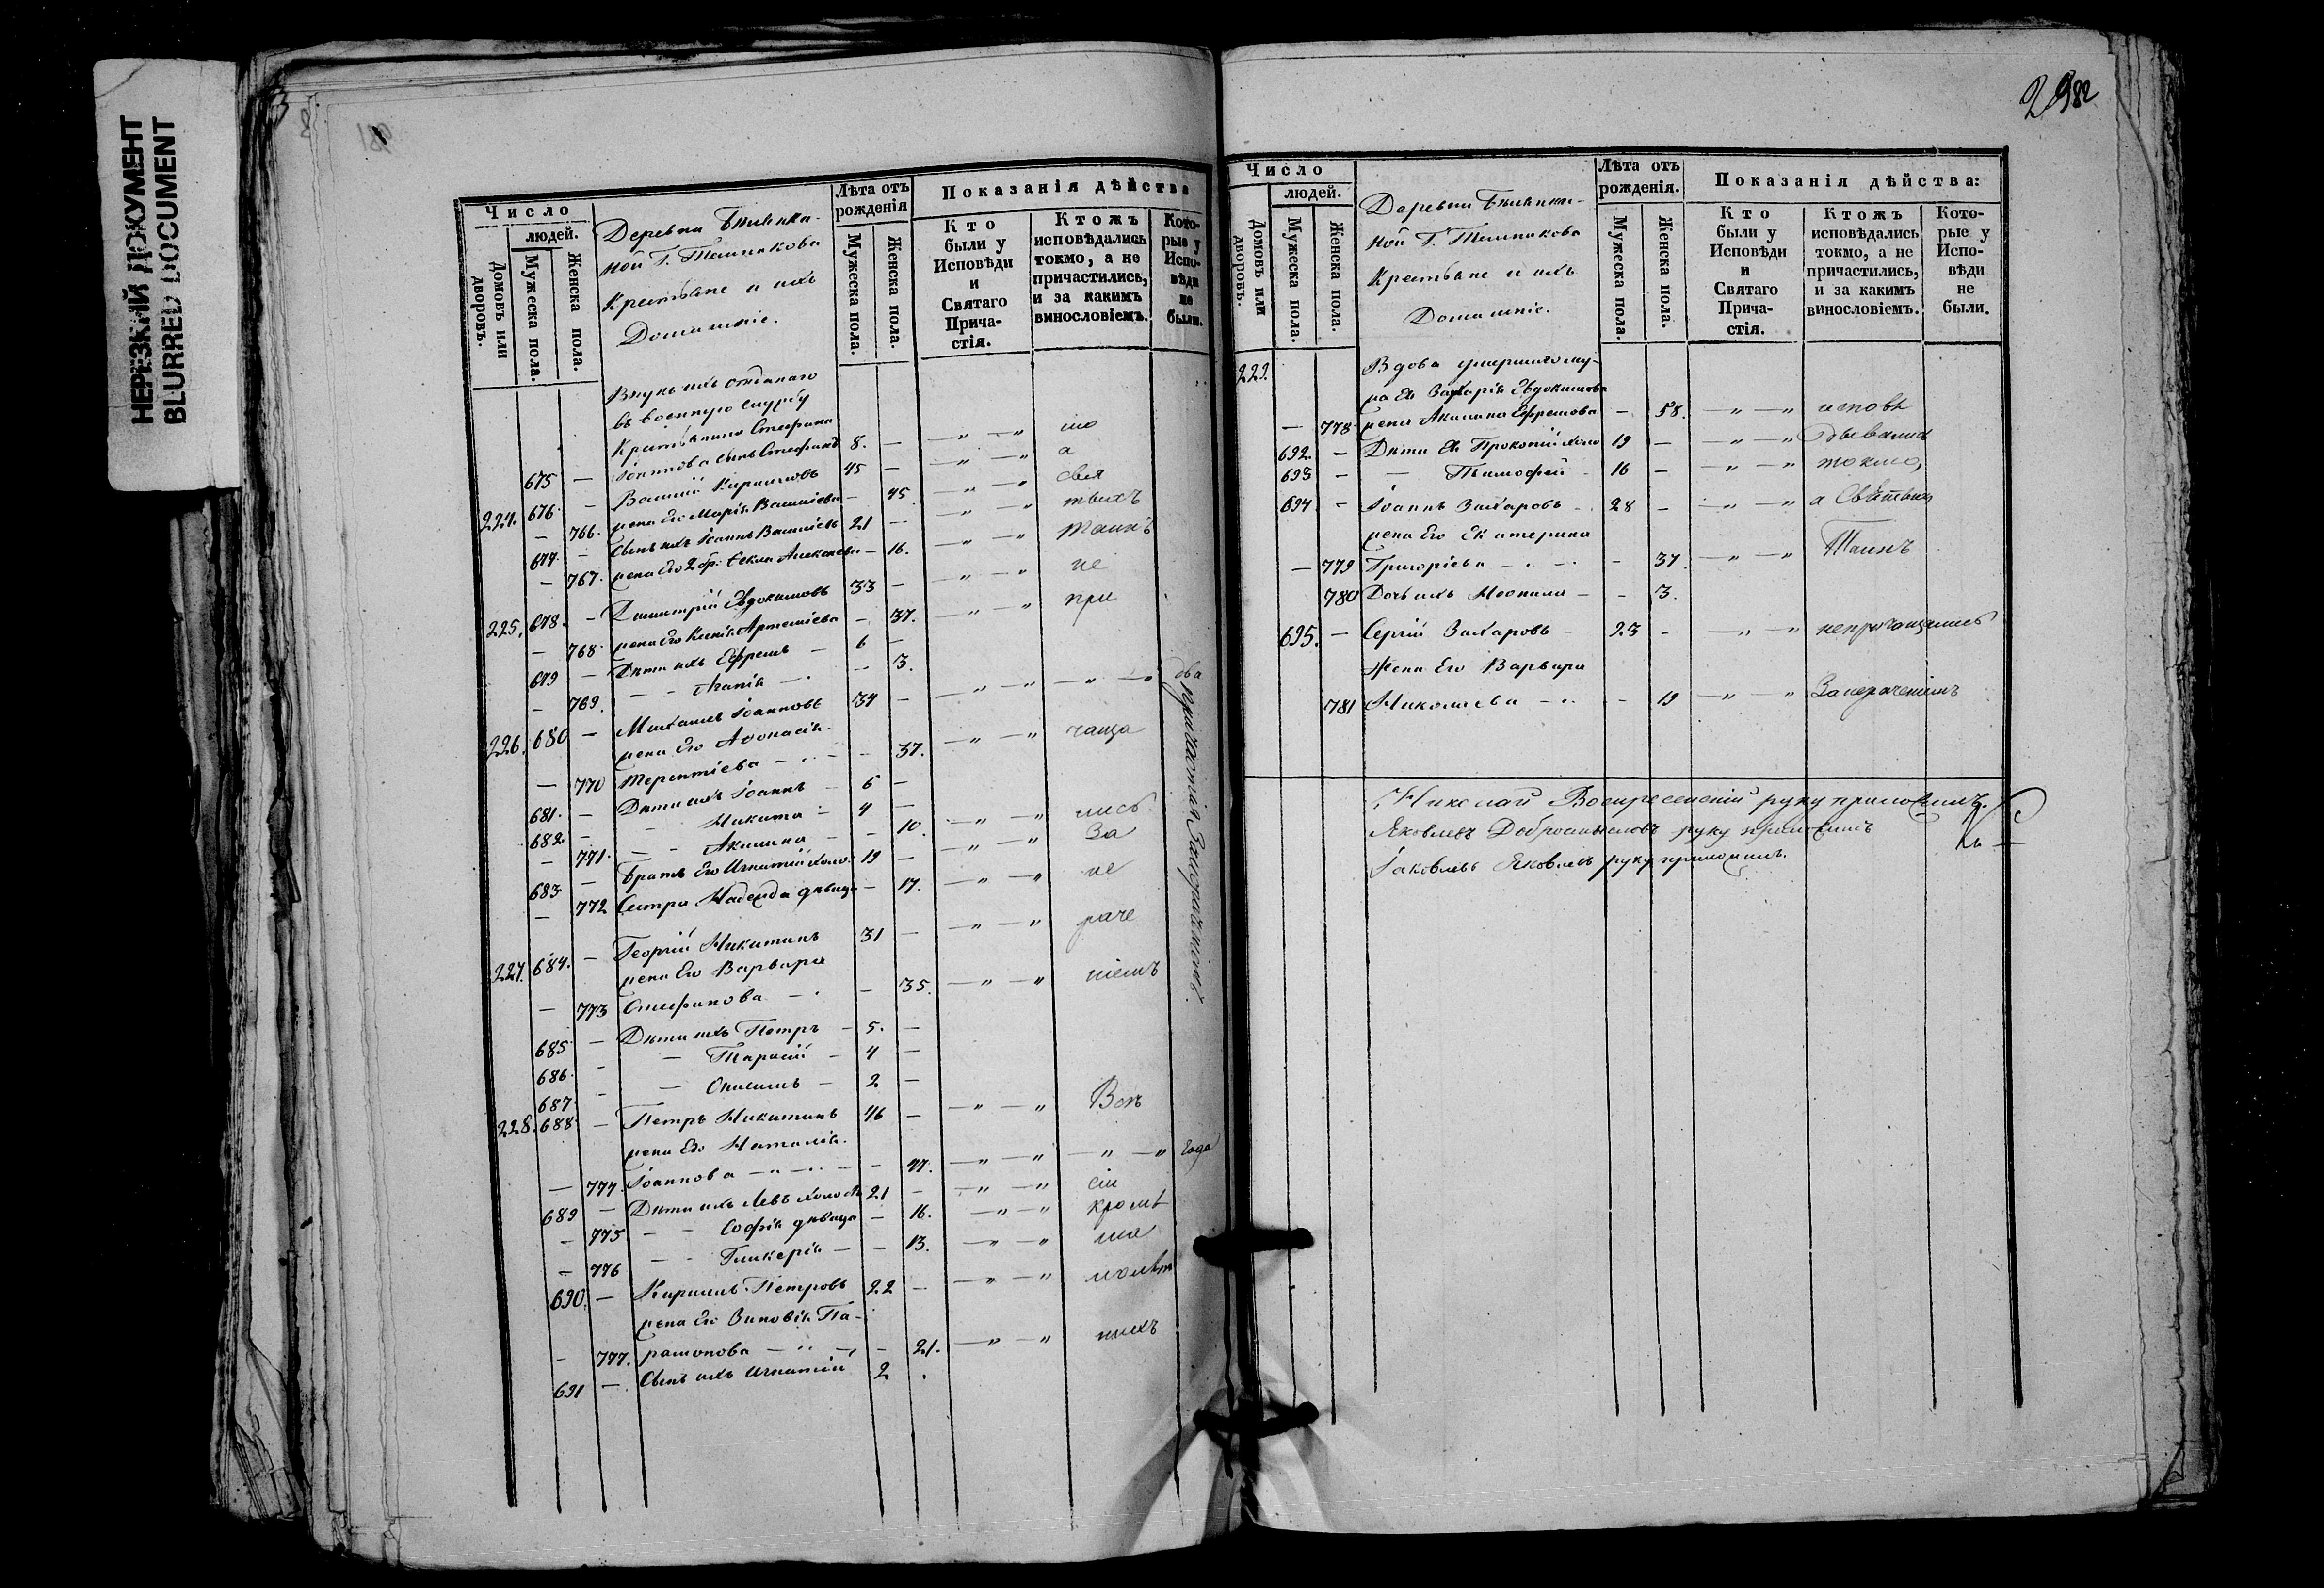 НЕРЕЗКИЙ ДОКУМЕНТ
BLURRED DOCUMENT
Число
людей.
Домовъ или дворовъ.
Мужеска пола.
Женска пола.
Деревни
Крестьяне и ихъ
Домашніе.
Лѣта отъ рожденія
Мужеска пола.
Женска пола.
Показанія дѣйства
Кто были у Исповѣди и Святаго Причастія.
Ктожъ исповѣдались токмо, а не причастились, и за какимъ винословіемъ.
Которые у Исповѣди не были.
Внукъ ихъ отданаго
въ военную службу
Крестьянина Стефана
675 — Іоаннова сынъ Стефанъ 8. — —„ —„
224. 676 — Василій Кириловъ 45 — —„ —„ а
— 766. жена Его Марія Василіева — 45. —„ —„ свя
677. — Сынъ ихъ Іоаннъ Василіевъ 21 — —„ —„ тыхъ
— 767. жена Его 2 бр: Ѳекла Алексеева — 16. —„ —„ Таинъ
225. 678. — Димитрій Евдокимовъ 33 — —„ —„ не
— 768 жена Его Ксенія Артеміева — 37. —„ —„ при
679 — Дѣти ихъ Ефремъ — 6 —
— 769. — — — 3.
226. 680 — Михаилъ Іоанновъ 34 — —„ —„ —„ —„
жена Его Аѳонасія
— 770 Терентіева — — 37. —„ —„ чаща
681. — Дѣти ихъ Іоаннъ — 6 —
682. — — Никита — 4 —
— 771. — — Акилина — — 10. —„ —„ лись
683 — Братъ Его Игнатій холо. 19 — —„ —„ За
— 772 Сестра Надежда дѣвица — 17. —„ —„ не
227. 684. — Георгій Никитинъ 31 — —„ —„ раче
жена Его Варвара
— 773 Стефанова — — 35. —„ —„ ніемъ
685 — Дѣти ихъ Петръ — 5. —
686. — — Тарасій — 4 —
687. — — Онисимъ — 2 —
228. 688. — Петръ Никитинъ 46 — —„ —„ Всѣ
жена Его Наталія
— 774. Іоаннова — — 47. —„ —„ —„ —„ года
689 — Дѣти ихъ Левъ холос. 21 — —„ —„ сіи
— 775 — — Софія дѣвица — 16. —„ —„ кромѣ
— 776 — — Гликерія — — 13. —„ —„ ма
690. — Кирилъ Петровъ 22 — —„ —„ лолѣт
жена Его Зиновія Па-
— 777. рамонова — — 21. —„ —„ нихъ
691 — Сынъ ихъ Игнатій 2
2982
Число
людей.
Домовъ или дворовъ.
Мужеска пола.
Женска пола.
Деревни
Крестьяне и ихъ
Домашніе.
Лѣта отъ рожденія.
Мужеска пола.
Женска пола.
Показанія дѣйства:
Кто были у Исповѣди и Святаго Причастія.
Ктожъ исповѣдались токмо, а не причастились, и за какимъ винословіемъ.
Которые у Исповѣди не были.
229. Вдова умершаго му-
жа Ея Захарія Евдокимова
— 778. жена Акилина Ефремова — 58. —„ —„ исповѣ
692. — Дѣти Ея Прокопій холо 19 — —„ —„ дывались
693 — — Тимофей — 16 — —„ —„ токмо,
694 — Іоаннъ Захаровъ 28 — —„ —„ а Святыхъ
жена Его Екатерина
— 779 Григоріева — — 37. —„ —„ Таинъ
780 Дочь ихъ Неонила — — 3.
695. — Сергій Захаровъ 23 — —„ —„ непричащались
Жена Его Варвара
781 Николаева — — 19 —„ —„ Занераченіемъ
Николай Воскресенскій руку приложилъ.
Яковлевъ Добросмысловъ руку приложилъ
Іаковлевъ Яковлевъ руку приложилъ.